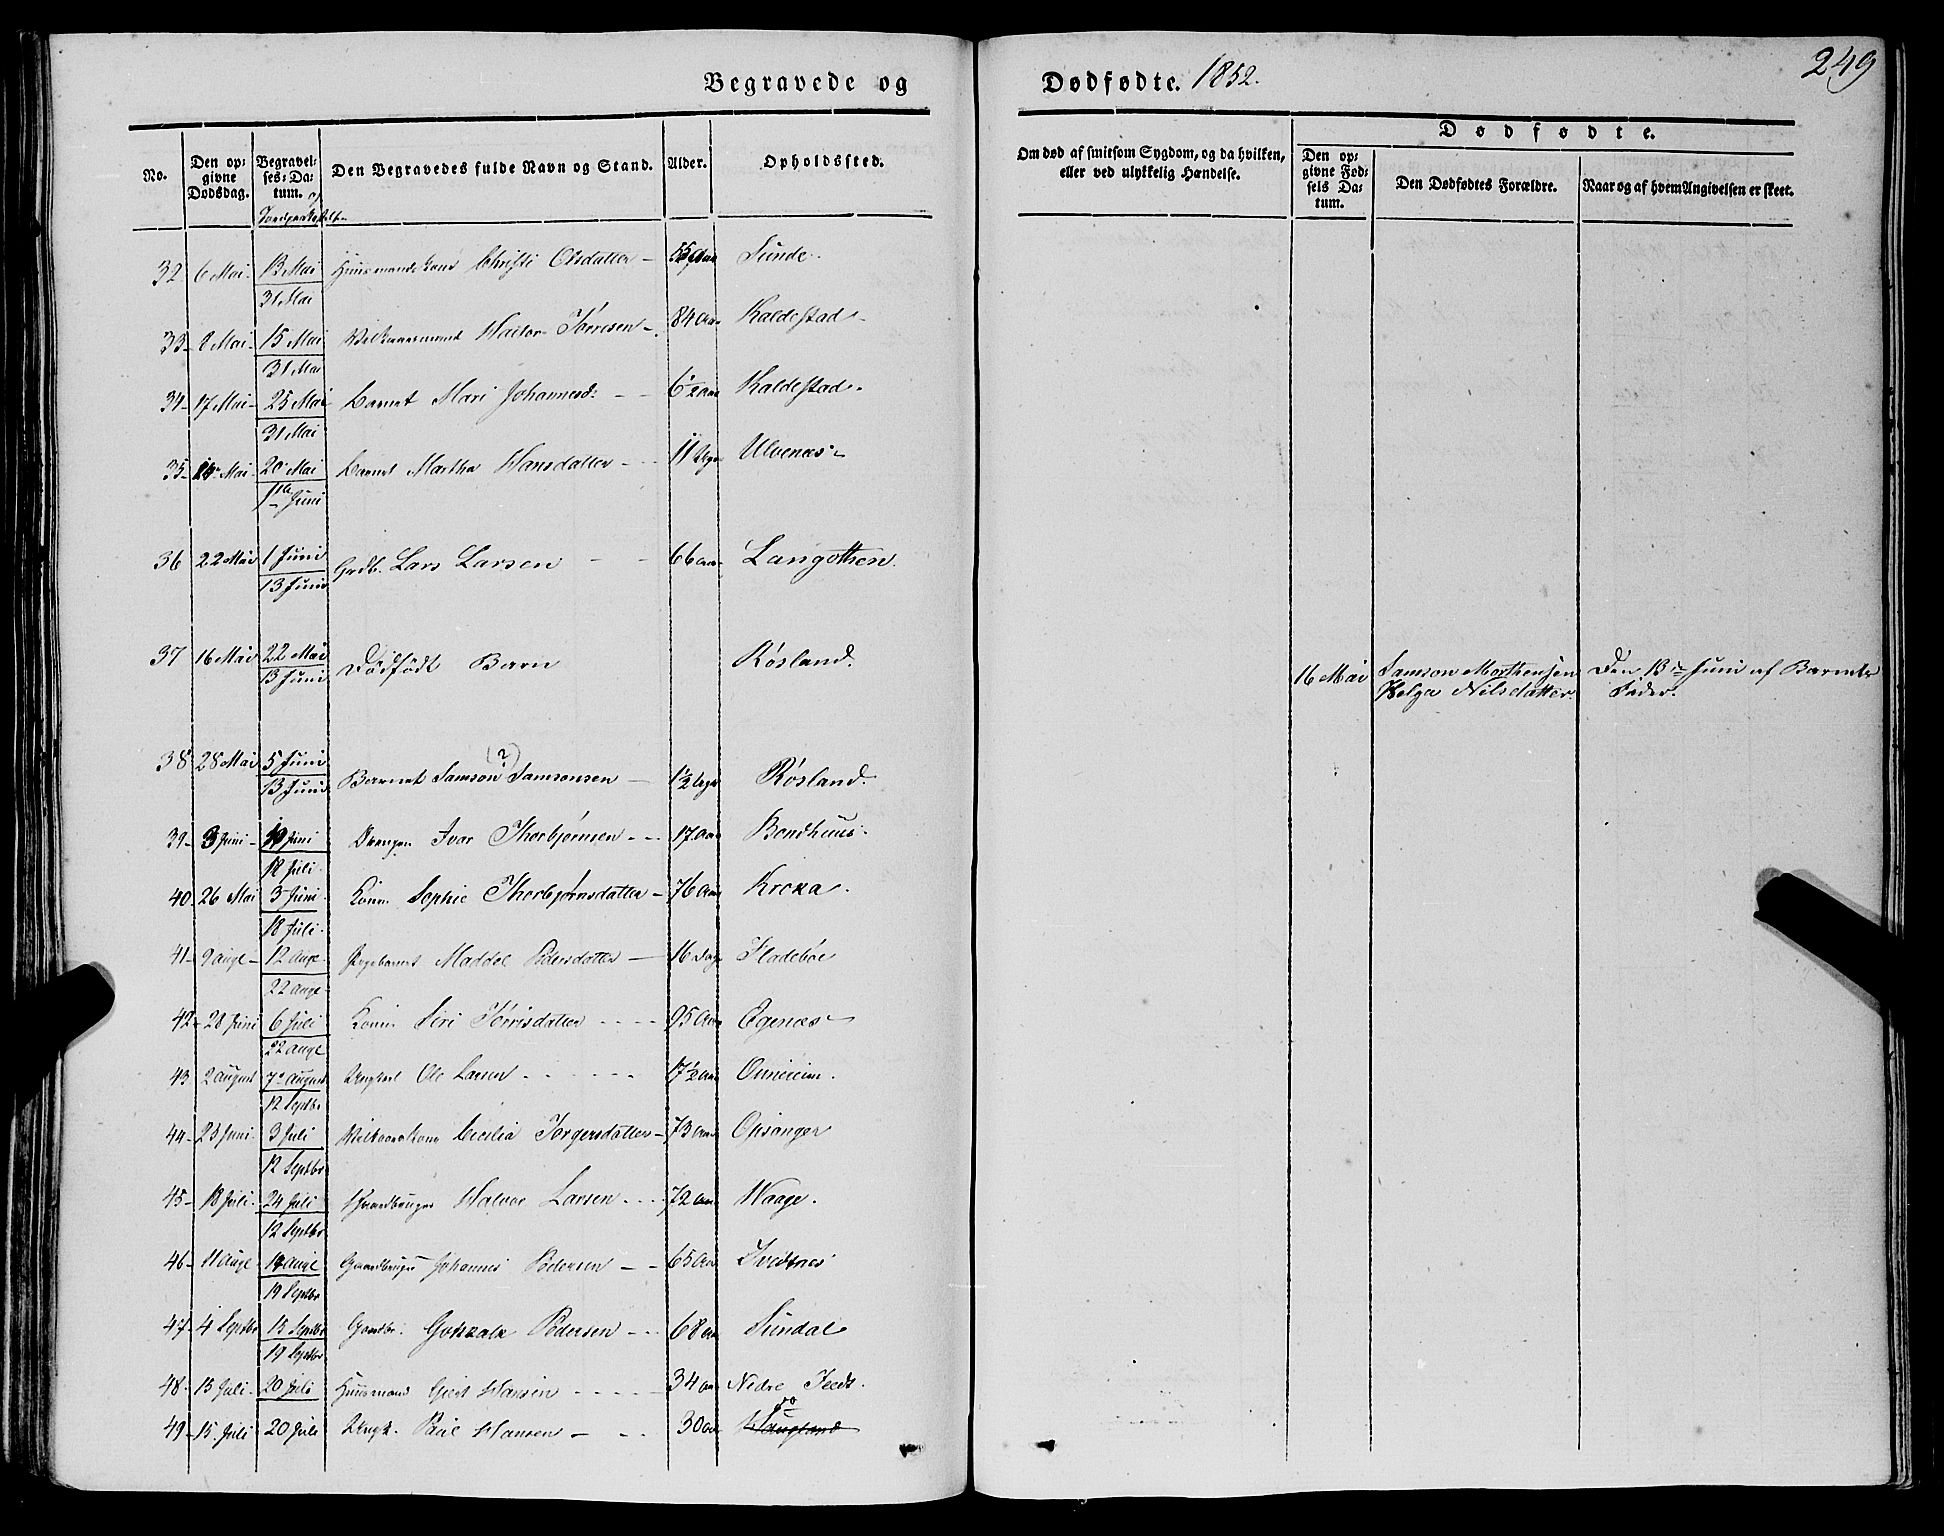 249
Begravede og Dødfødte. 1852.
No. | Den opgivne Dødsdag. | Begravelses-Datum. og | Den Begravedes fulde Navn og Stand. | Alder. | Opholdssted. | Om død af smitsom Sygdom, og da hvilken, eller ved ulykkelig Hændelse. | Dødfødte. | Den opgivne Fødsels Datum. | Den Dødfødtes Forældre. | Naar og af hvem Angivelsen er skeet.
32 | 6 Mai | 13 Mai | Christi Olsdatter | 55 Aar | Sunde
31 Mai
33 | 8 Mai | 15 Mai | 84 Aar | Kaldestad
31 Mai
34 | 17 Mai | 25 Mai | Barnet Mari Johannesd: | 6½ Aar | Kaldestad
31 Mai
35 | Mai | 20 Mai | Barnet Martha Hansdatter | 11 Uger | Ulvenæs
1ste Juni
36 | 22 Mai | 1 Juni | Grdb. Lars Larsen | 66 Aar | Langothen
13 Juni
37 | 16 Mai | 22 Mai | Dödfödt Barn | Røsland | 16 Mai | Samson Morthensen | Den 13de Juni af Barnets
13 Juni | Helga Nilsdatter | Fader.
38 | 28 Mai | 5 Juni | Barnet Samson (?) Samsonsen | 1½ Uger | Røsland
13 Juni
39 | 3 Juni | Juni | Drengen Ivar Thorbjørnsen | 17 Aar | Bondhuus
18 Juli
40 | 26 Mai | 3 Juni | Konen Sophie Thorbjørnsdatter | 76 Aar
18 Juli
41 | 9 Aug | 12 Aug | Pigebarnet Maddel Pedersdatter | 16 Dage | Fladebøe
22 Aug
42 | 28 Juni | 6 Juli | Konen Siri Tørrisdatter | 95 Aar | Egenæs
22 Aug
43 | 2 August | 7de August | Ungkarl Ole Larsen | 17½ Aar
12 Septbr
44 | 23 Juni | 3 Juli | Cecilia Torgersdatter | 73 Aar | Opsanger
12 Septbr
45 | 18 Juli | 24 Juli | Gaardbruger Halvor Larsen | 72 Aar | Waage
12 Septbr
46 | 11 Aug | Aug | Gaardbruger Johannes Pedersen | 65 Aar | Tvedtnes
19 Septbr
47 | 4 Septbr | 15 Septbr | Gaardbr. Gotskalk Pedersen | 68 Aar | Sundal
19 Septbr
48 | 15 Juli | 20 Juli | Huusmand Geert Hansen | 34 Aar | Nedre
49 | 15 Juli | 20 Juli | Ungk. Paul Hansen | 30 Aar | do